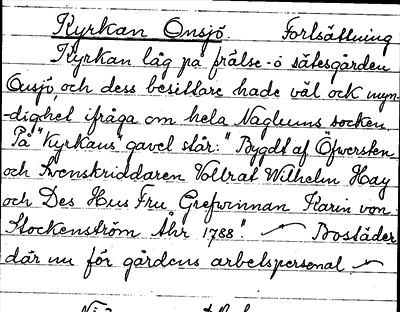 Kyrkan Onsjö. Fortsättning
Kyrkan låg på frälse-ö sätesgården
Onsjö, och dess besittare hade väl ock myn-
-dighet ifråga om hela Naglums socken.
På "Kyrkans" gavel står: "Bygdt af Öfwersten
och Svenskriddaren Vollrat Wilhelm Hay
och Des Hus Fru Grefwinnan Karin von
Stockenström Åhr 1788". Bostäder
där nu för gårdens arbetspersonal